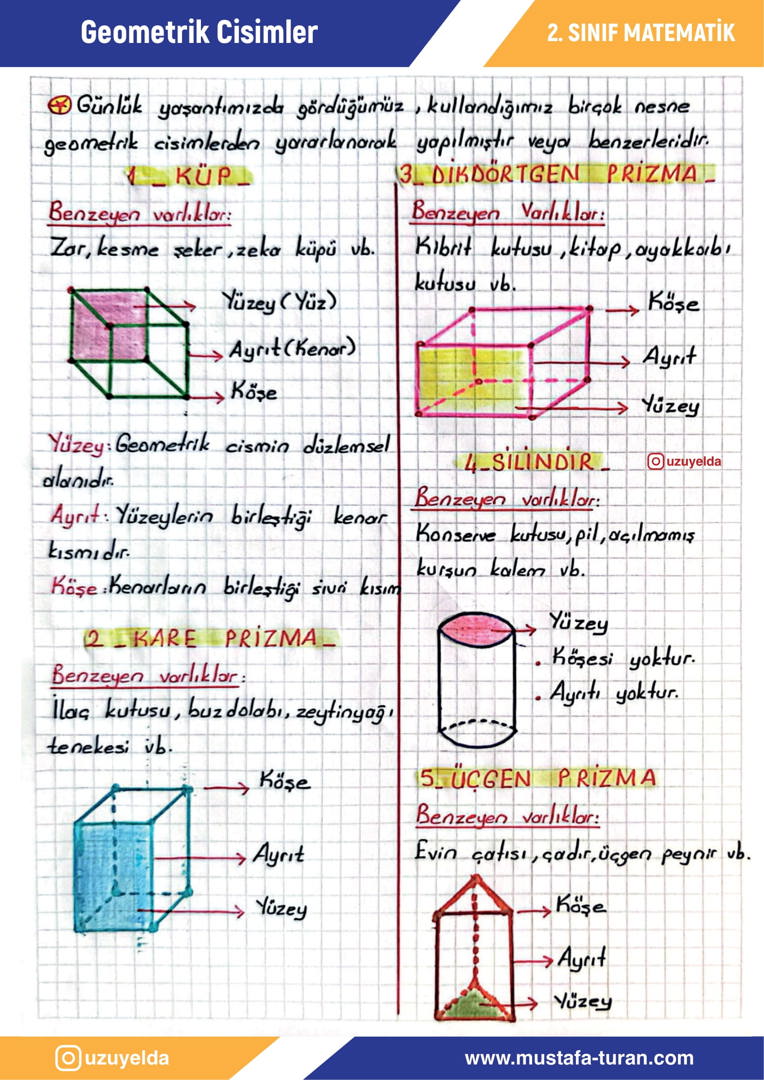 Geometrik Cisimler
2. SINIF MATEMATİK
Günlük yaşantımızda gördüğümüz, kullandığımız birçok nesne
geometrik cisimlerden yararlanarak yapılmıştır veya benzerleridir.
1_ KÜP_
Benzeyen varlıklar:
Zar, kesme şeker, zeka küpü vb.
Yüzey (Yüz)
Ayrıt (Kenar)
Köşe
Yüzey: Geometrik cismin düzlemsel
alanıdır.
Ayrıt: Yüzeylerin birleştiği kenar
kısmıdır.
Köşe: Kenarların birleştiği sivri kısım
2_KARE PRİZMA_
Benzeyen varlıklar:
İlaç kutusu, buzdolabı, zeytinyağı
tenekesi vb.
Köşe
Ayrıt
Yüzey
3_ DİKDÖRTGEN PRİZMA_
Benzeyen Varlıklar:
Kibrit kutusu, kitap, ayakkabı
kutusu vb.
Köşe
Ayrıt
Yüzey
4_SİLİNDİR_
uzuyelda
Benzeyen varlıklar:
Konserve kutusu, pil, açılmamış
kurşun kalem vb.
Yüzey
. Köşesi yoktur.
. Ayrıtı yoktur.
5_ÜÇGEN PRİZMA
Benzeyen varlıklar:
Evin çatısı, çadır, üçgen peynir vb.
Köşe
Ayrıt
Yüzey
uzuyelda
www.mustafa-turan.com